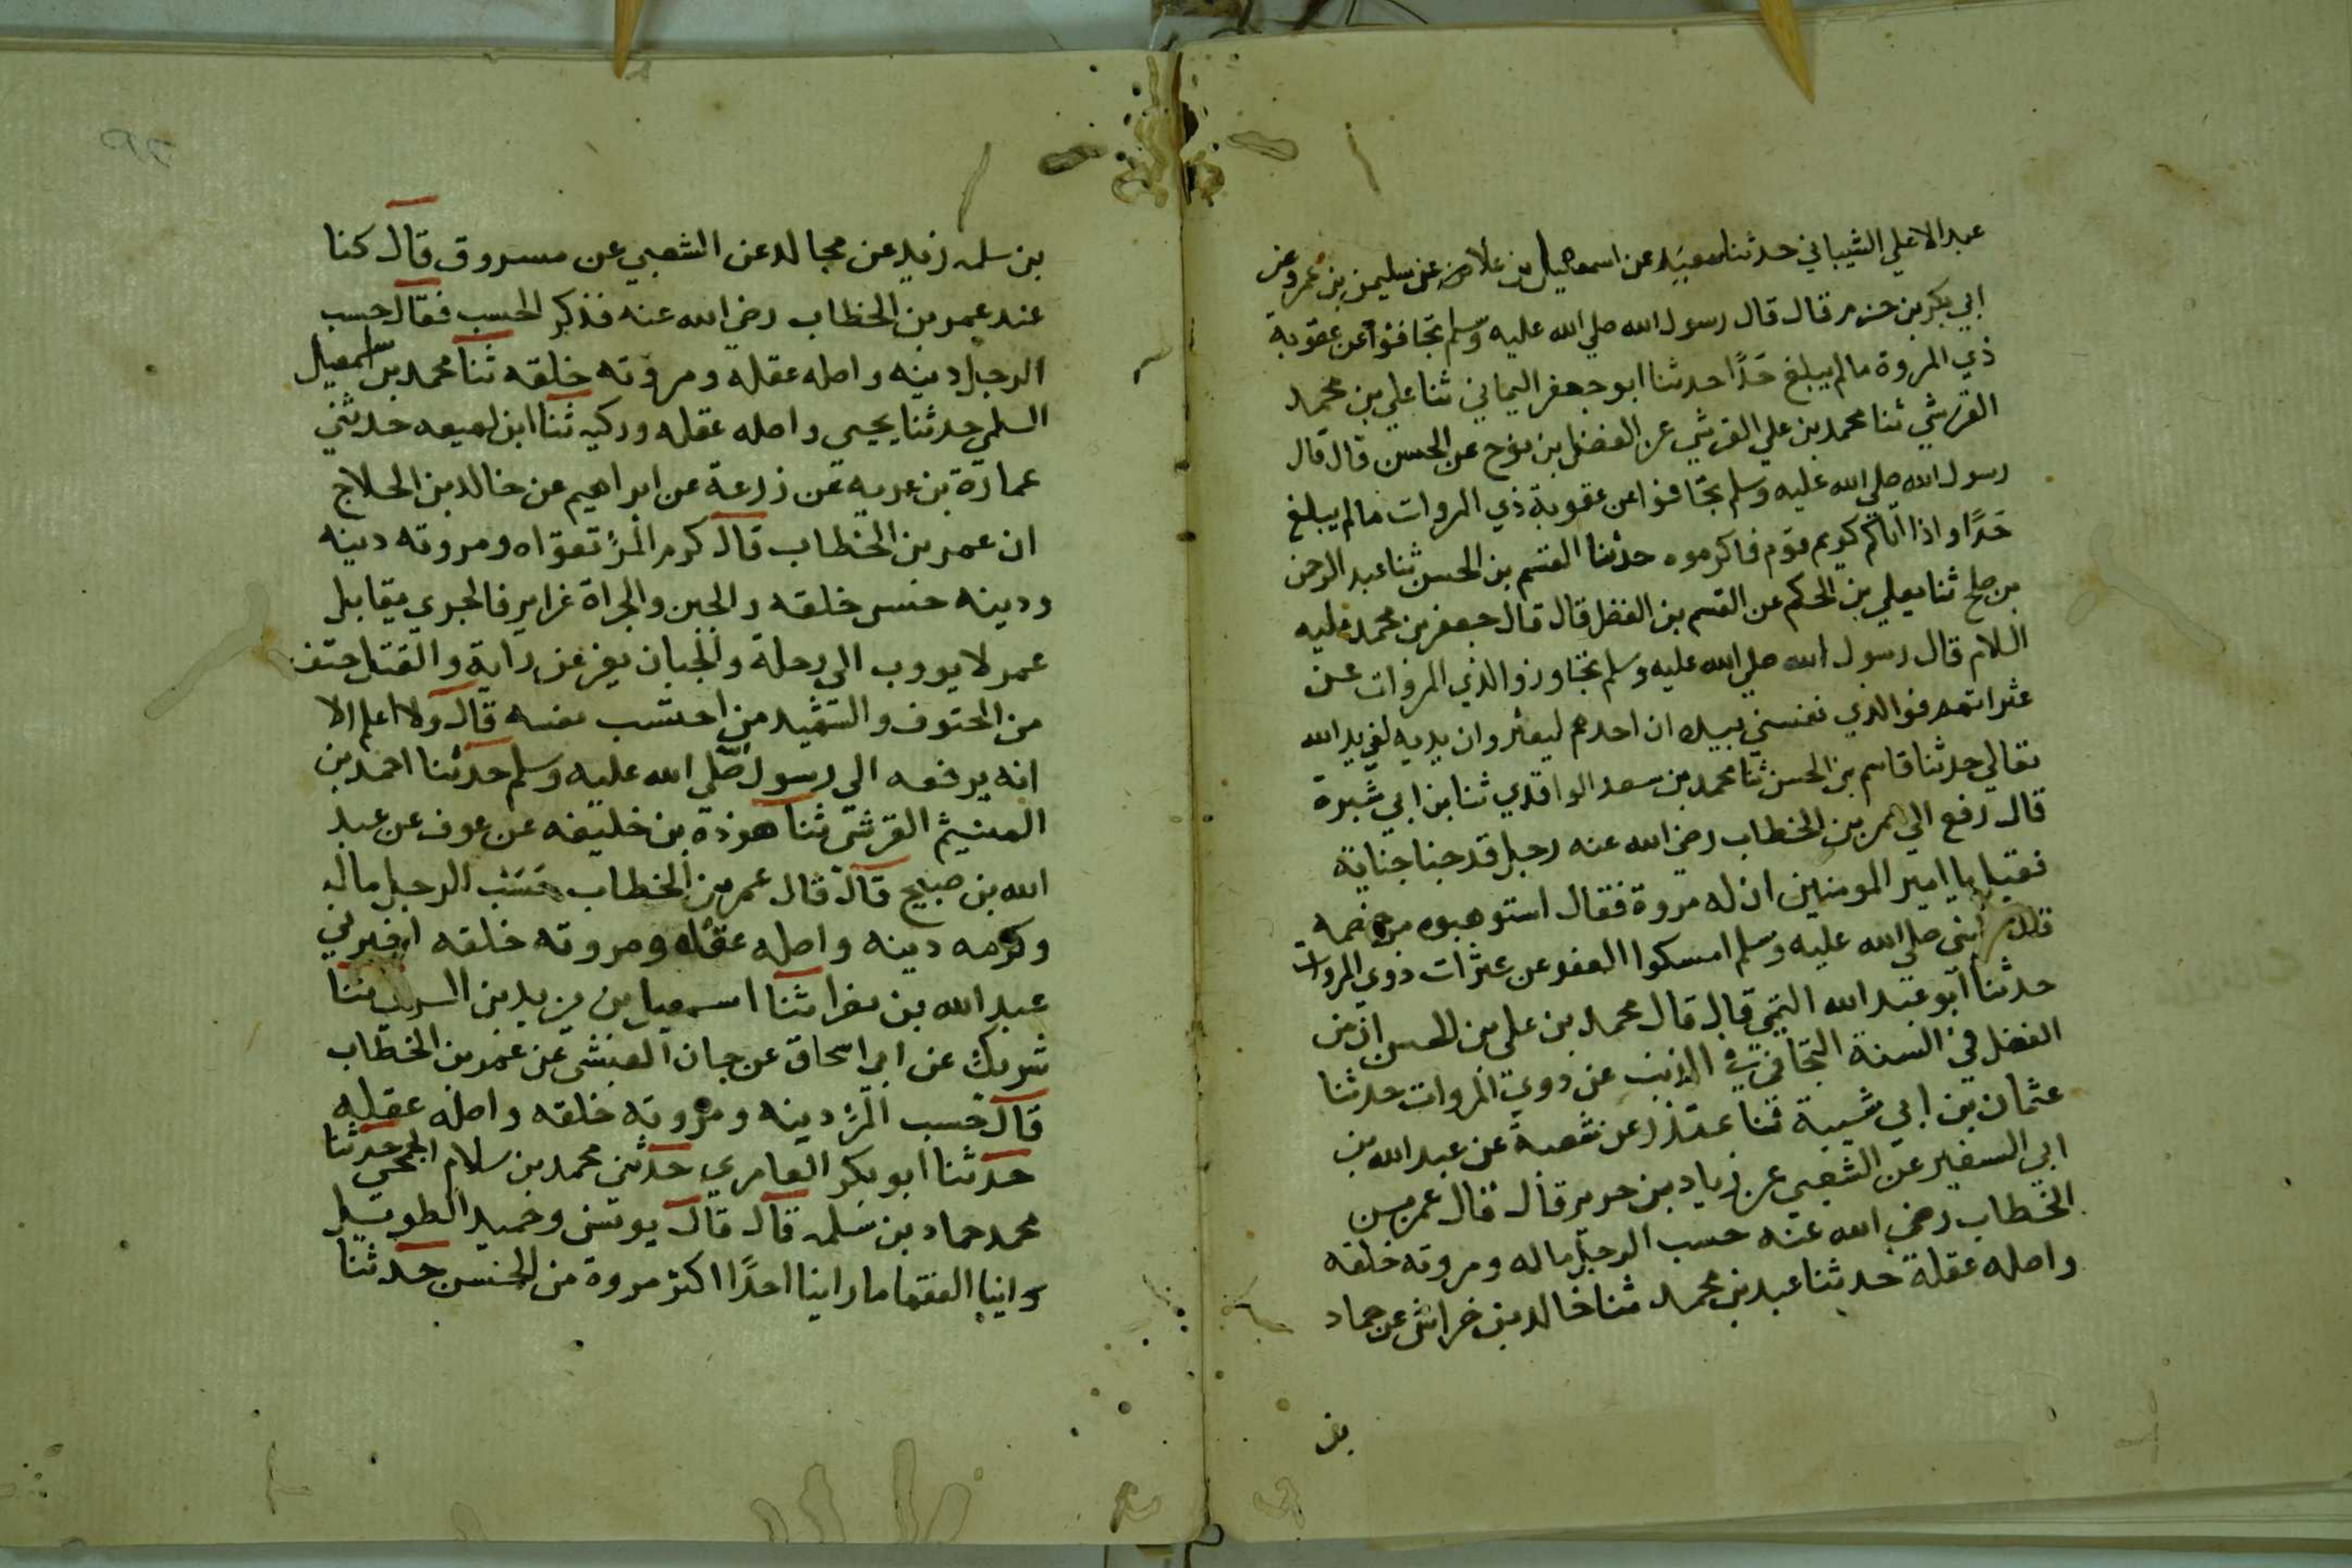 عبد الاعلي الشيباني حدثنا سعيد عن اسمعيل بن علا عن سليمن بن عمر وعن
ابي بكر بن حزم قال قال رسول الله صلي الله عليه وسلم تجافوا عن عقوبة
ذي المروة مالم يبلغ حدًا حدثنا ابو جعفر اليماني ثنا علي بن محمد
القرشي ثنا محمد بن علي القرشي عن الفضل بن نوح عن الحسن قال قال
رسول الله صلي الله عليه وسلم تجافوا عن عقوبة ذي المروات مالم يبلغ
حدًا واذا اتاكم كريم قوم فاكرموه حدثنا القسم بن الحسن ثنا عبد الرحمن
بن صلح ثنا يعلي بن الحكم عن القسم بن الفضل قال قال جعفر بن محمد عليه
اللام قال رسول الله صلي الله عليه وسلم تجاوزوا لذي المروات عن
عثراتهم فوالذي نفسي بيده ان احدهم ليعثر وان يديه لفي يد الله
تعالي حدثنا قاسم بن الحسن ثنا محمد بن سعد الواقدي ثنا بن ابي شبرة
قال رفع الي عمر بن الخطاب رضي الله عنه رجل قد جنا جناية
فقيل يا امير المومنين ان له مروة فقال استوهبوه من خصمه
قال النبي صلي الله عليه وسلم امسكوا العفو عن عثرات ذوي المروات
حدثنا ابو عبد الله التيمي قال قال محمد بن علي بن الحسن ان من
الفضل في السنة التجافي في الذنب عن دوي المروات حدثنا
عثمان بن ابي شيبة ثنا غندر عن شعبة عن عبد الله بن
ابي السفير عن الشعبي عن زياد بن حدير قال قال عمر بن
الخطاب رضي الله عنه حسب الرجل ماله ومروته خلقه
واصله عقلة حدثنا عبد بن محمد ثنا خالد بن خراش عن حماد
بن
بن سلمه زيد عن مجالد عن الشعبي عن مسروق قال كنا
عند عمر بن الخطاب رضي الله عنه فذكر الحسب فقال حسب
الرجل دينه واصله عقله ومروته خلقه ثنا محمد بن اسمعيل
السلمي حدثنا يحيي واصله عقله وركيه ثنا ابن لهيعه حدثني
عمارة بن عربه عن زرعة عن ابراهيم عن خالد بن الحلاج
ان عمر بن الخطاب قال كرم المرُ تقواه ومروته دينه
ودينه حسن خلقه والجبن والجراة غراير فالجري يقاتل
عمر لا يووب الي رحلة والجبان يفر عن راية والقتل حتف
من الحتوف والشهيد من احتسب نفسه قال ولا اعلم الا
انه يرفعه الي رسول صلي الله عليه وسلم حدثنا احمد بن
الهيثم القرشي ثنا هوذة بن خليفه عن عوف عن عبد
الله بن صبيح قال قال عمر بن الخطاب حسب الرجل ماله
وكرمه دينه واصله عقله ومروته خلقه اخبرني
عبد الله بن ثنا اسمعيل بن يزيد بن السري ثنا
شريك عن ابي اسحاق عن حسان العبسي عن عمر بن الخطاب
قال حسب المرُ دينه ومروته خلقه واصله عقله
حدثنا ابو بكر العامري حدثني محمد بن سلام الجمحي حدثنا
محمد حماد بن سلمه قال قال يونس وحميد الطويل
راينا الفقها ما راينا احدًا اكثر مروة من الحسن حدثنا